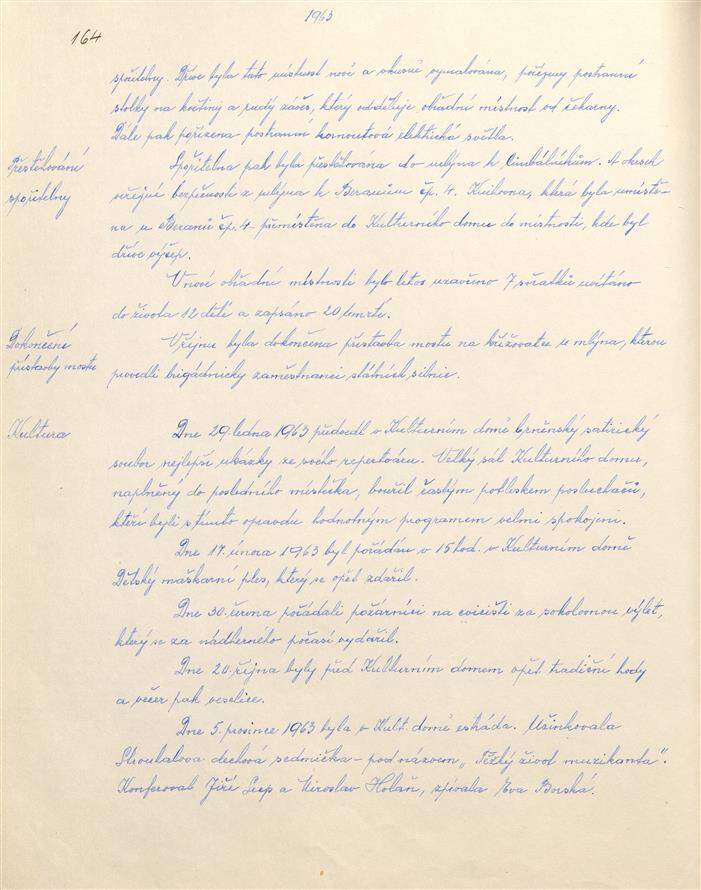 1963
164
spořitelny. Dříve byla tato místnost nově a vkusně vymalována, pořízeny postranní
stolky na kočtiny a rudý závěs, který odděluje obřadní místnost od čekárny.
Dále pak pořízena postranní kornoutová elektrická světla.
Přestěhování
spořitelny
Spořitelna pak byla přestěhována do mlýna k Cimbálníkům. A okrsek
veřejné bezpečnosti z mlýna k Beranům čp. 4. Knihovna, která byla umístě-
na u Beranů čp. 4 - přemístěna do Kulturního domu do místnosti, kde byl
dříve výčep.
V nové obřadní místnosti bylo letos uzavřeno 7 sňatků uvítáno
do života 12 dětí a zapsáno 20 úmrtí.
Dokončení
přístavby mostu
V říjnu byla dokončena přístavba mostu na křižovatce u mlýna, kterou
provedli brigádnicky zaměstnanci státních silnic.
Kultura
Dne 29. ledna 1963 předvedl v Kulturním domě brněnský satirický
soubor nejlepší ukázky ze svého repertoáru. Velký sál Kulturního domu,
naplněný do posledního místečka, bouřil častým potleskem posluchačů,
kteří byli s tímto opravdu hodnotným programem velmi spokojeni.
Dne 17. února 1963 byl pořádán v 15 hod. v Kulturním domě
Dětský maškarní ples, který se opět zdařil.
Dne 30. června pořádali požárníci na cvičišti za sokolovnou výlet,
který se za nádherného počasí vydařil.
Dne 20. října byly před Kulturním domem opět tradiční hody
a večer pak veselice.
Dne 5. prosince 1963 byla v Kult. domě estráda. Účinkovala
Strouhalova dechová sedmička - pod názvem „Těžký život muzikanta".
Konferoval Jiří a Miroslav Holáň, zpívala Eva Borská.